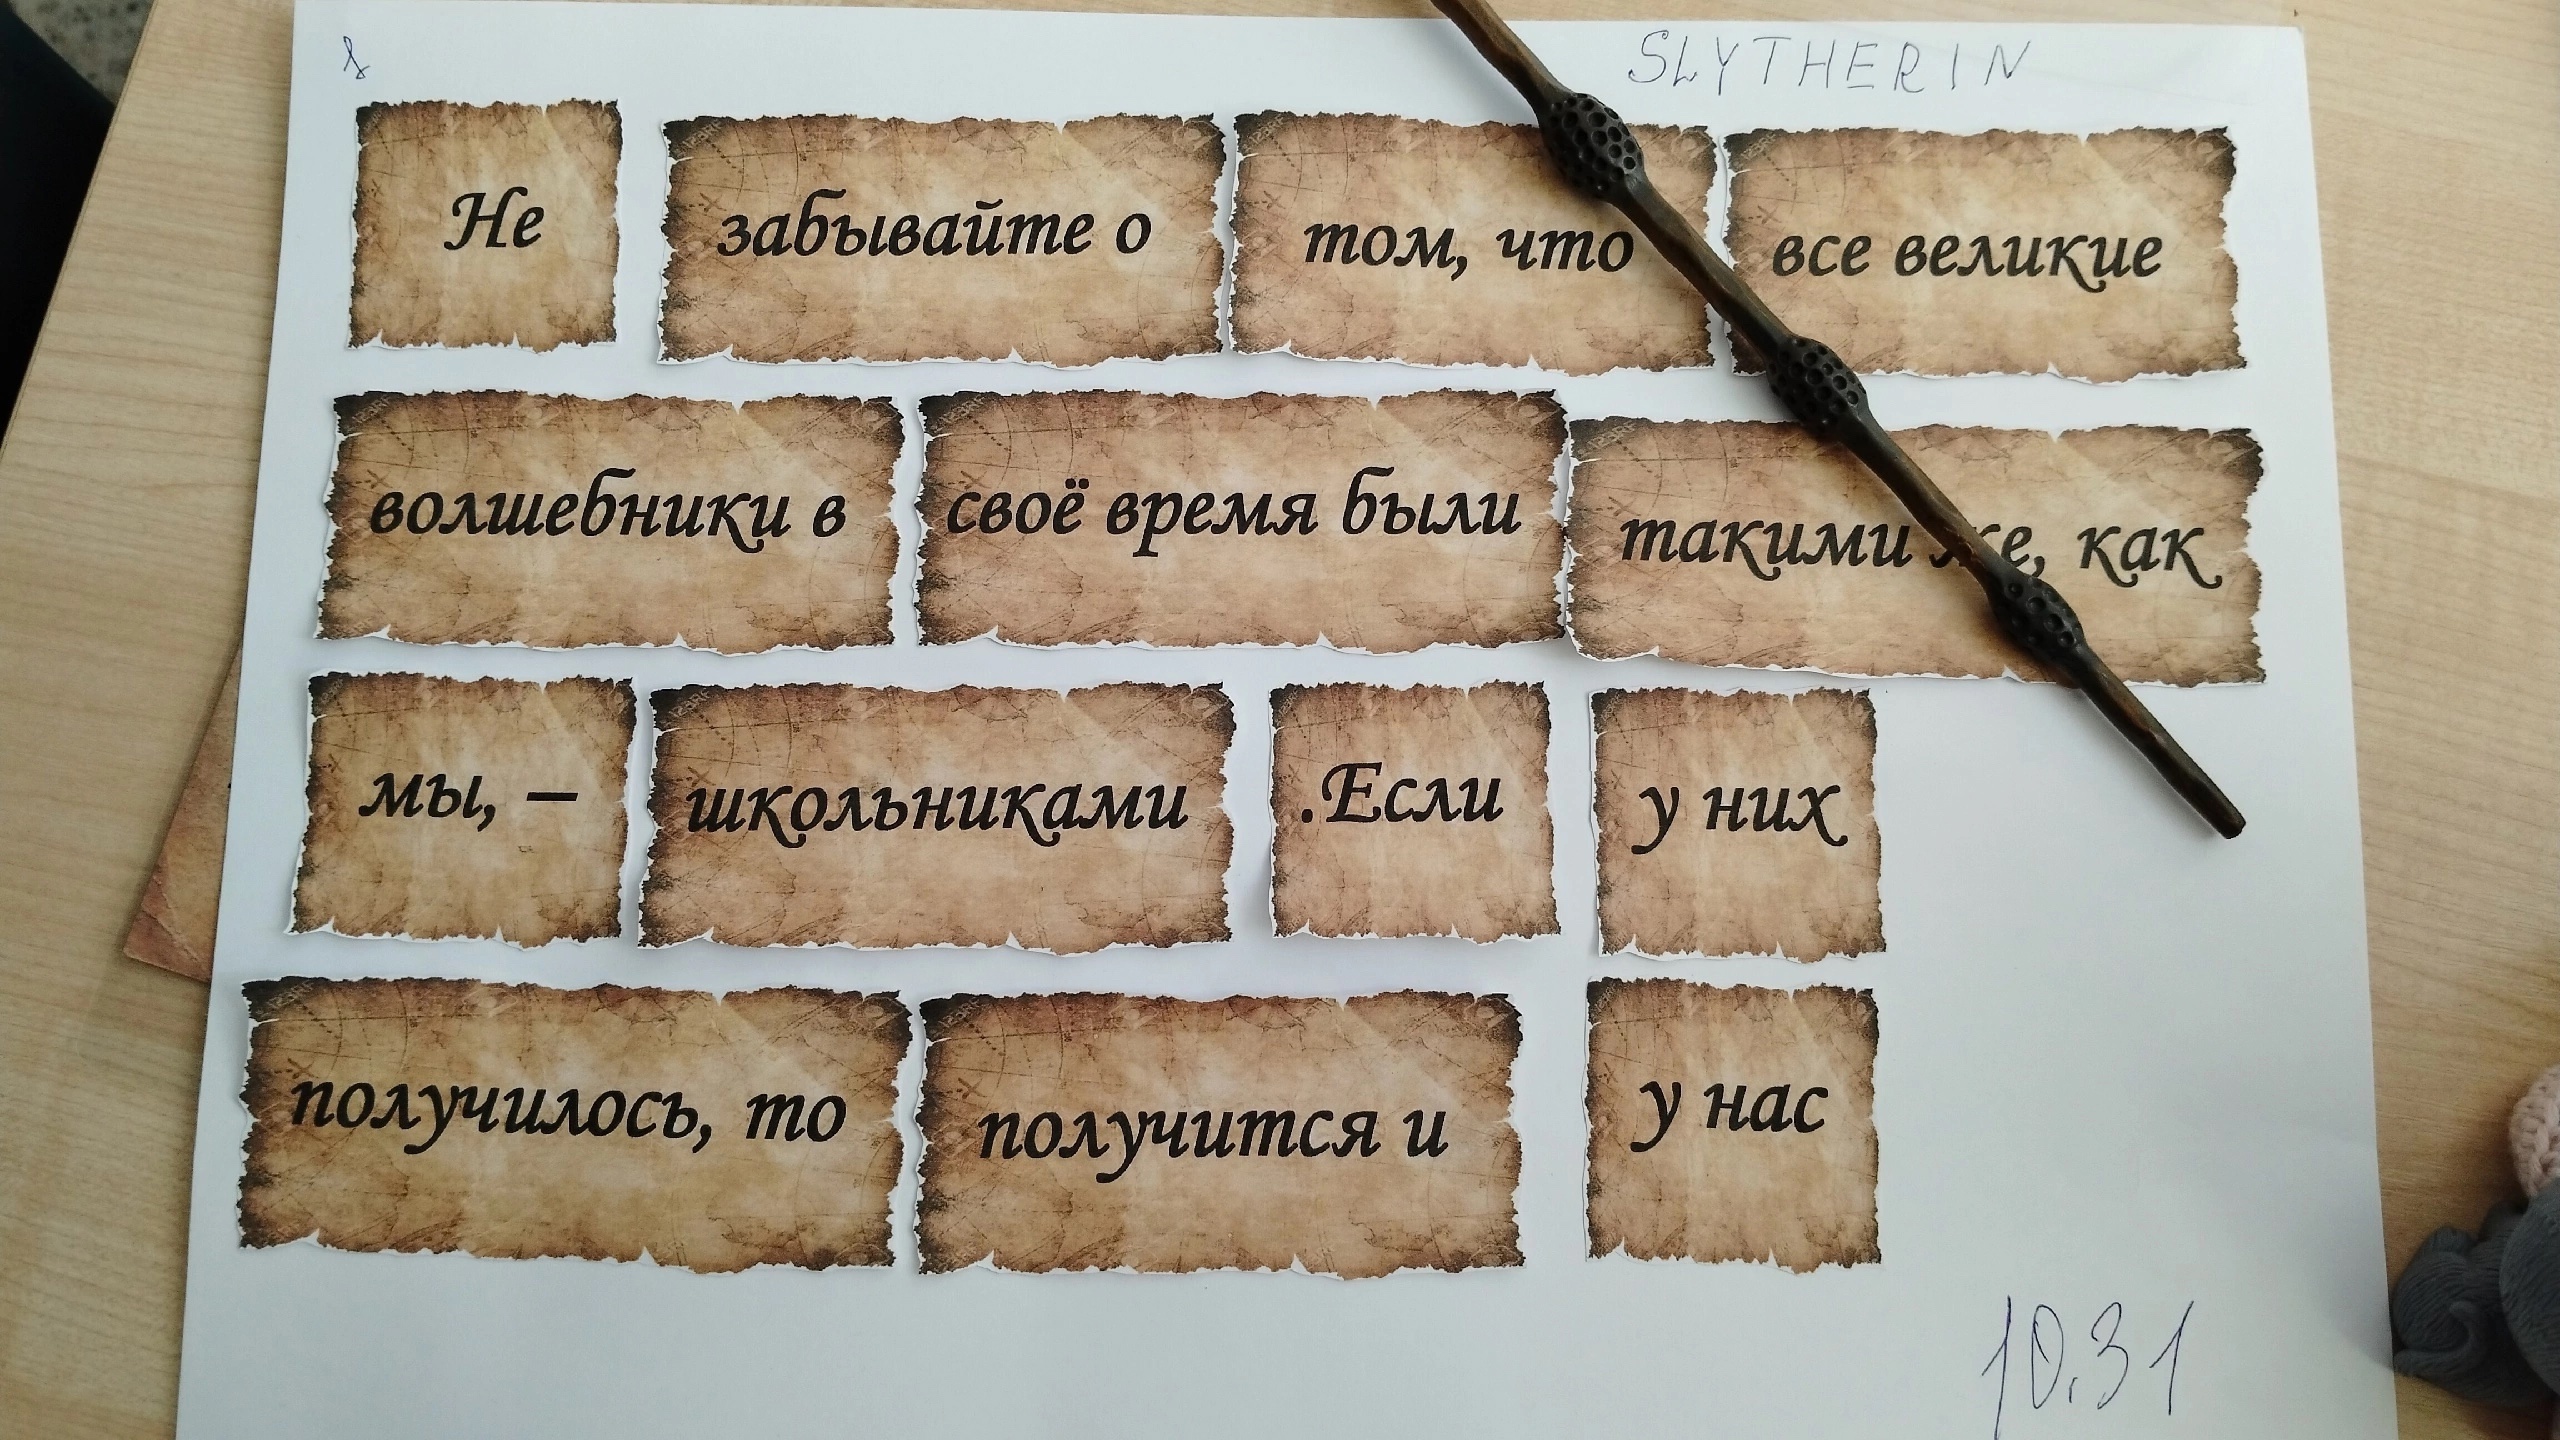 SLYTHERIN
Не забывайте о том, что все великие
волшебники в своё время были такими же, как
мы, – школьниками .Если у них
получилось, то получится и у нас
10.31